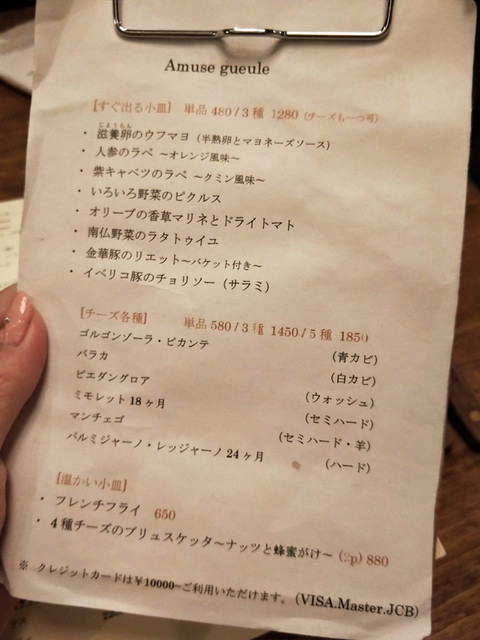 Amuse gueule
[すぐ出る小皿] 単品 480 / 3 種 1280 (チーズも一つ可)
・ 滋養卵のウフマヨ (半熟卵とマヨネーズソース)
・ 人参のラペ ～オレンジ風味～
・ 紫キャベツのラペ ～クミン風味～
・ いろいろ野菜のピクルス
・ オリーブの香草マリネとドライトマト
・ 南仏野菜のラタトゥイユ
・ 金華豚のリエット～バケット付き～
・ イベリコ豚のチョリソー (サラミ)
[チーズ各種] 単品 580 / 3 種 1450 / 5 種 1850
ゴルゴンゾーラ・ピカンテ (青カビ)
バラカ (白カビ)
ピエダングロア (ウォッシュ)
ミモレット 18 ヶ月 (セミハード)
マンチェゴ (セミハード・羊)
パルミジャーノ・レッジャーノ 24 ヶ月 (ハード)
[温かい小皿]
・ フレンチフライ 650
・ 4 種チーズのブリュスケッタ～ナッツと蜂蜜がけ～ (2p) 880
※ クレジットカードは￥10000~ご利用いただけます。(VISA.Master.JCB)